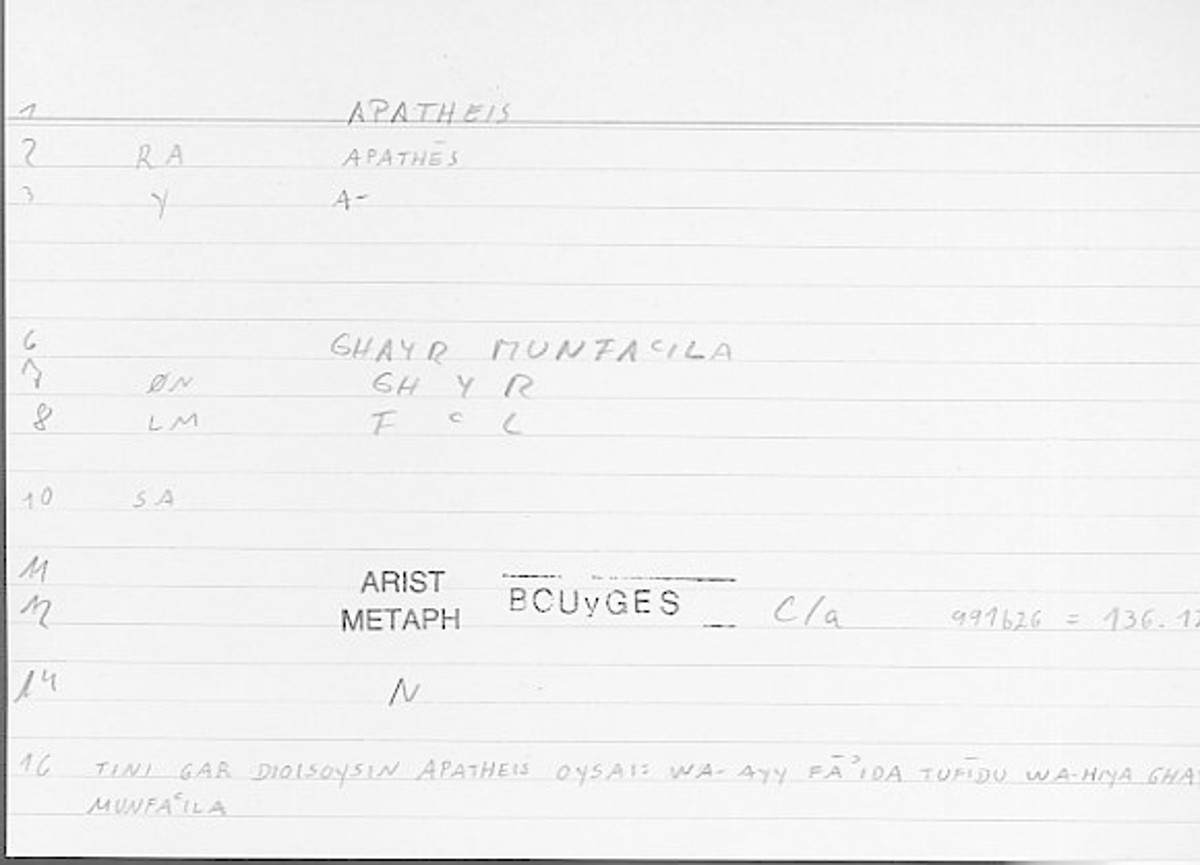 1 APATHEIS
2 RA APATHĒS
3 Y A-
6 GHAYR MUNFAᶜILA
7 ØN GH Y R
8 LM F ᶜ L
10 SA
11 ARIST
12 METAPH BOUyGES C/a 991b26 = 136.12
14 N
16 TINI GAR DIOISOYSIN APATHEIS OYSAI: WA- AYY FĀʾIDA TUFĪDU WA-HIYA GHAY
MUNFAᶜILA